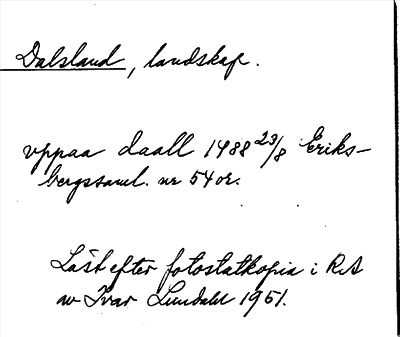 Dalsland, landskap.
vppaa daall 1488 23/8 Eriks-
bergssaml. nr 54 or.
Läst efter fotostatkopia i RA
av Ivar Lundahl 1951.